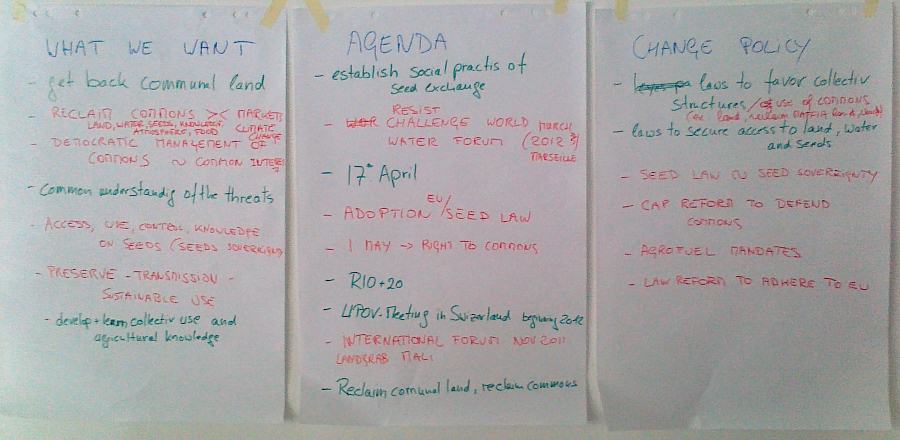 WHAT WE WANT
- get back communal land
- RECLAIM COMMONS >< MARKETS
LAND, WATER, SEEDS, KNOWLEDGE, CLIMATE
ATMOSPHERE, FOOD CHANGE
- DEMOCRATIC MANAGEMENT OF
COMMONS ~ COMMON INTEREST
- Common understandig of the threats
- ACCESS, USE, CONTROL, KNOWLEDGE
ON SEEDS (SEEDS SOVEREIGNTY
- PRESERVE - TRANSMISSION -
SUSTAINABLE USE
- develop + learn collectiv use and
agricultural knowledge
AGENDA
- establish social practis of
seed exchange
RESIST
- CHALLENGE WORLD MARCH
WATER FORUM (2012
MARSEILLE
- 17th April
EU/
- ADOPTION SEED LAW
- 1 MAY -> RIGHT TO COMMONS
- RIO+20
- UPOV-Meeting in Swizerland beginning 2012
- INTERNATIONAL FORUM NOV 2011
LANDGRAB MALI
- Reclaim comunal land, reclaim commons
CHANGE POLICY
- laws to favor collectiv
structures / use of commons
(ex land, reclaim MAFFIA land,
- laws to secure access to land, water
and seeds
- SEED LAW ~ SEED SOVEREIGNTY
- CAP REFORM TO DEFEND
COMMONS
- AGROFUEL MANDATES
- LAW REFORM TO ADHERE TO EU